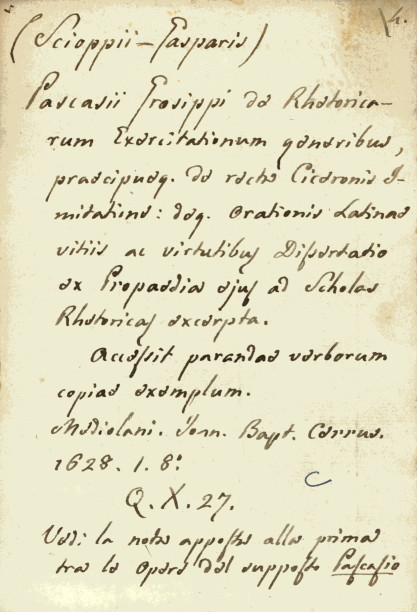 4.
(Scioppii - Gasparis)
Pascasii Grosippi de Rhetorica-
rum Exercitationum generibus,
praecipueq. de recta Ciceronis I-
mitatione: deq. Orationis Latinae
vitiis ac virtutibus Dissertatio
ex Propaedia ejus ad Scholas
Rhetoricas excerpta.
Accessit parandae verborum
copiae exemplum.
Mediolani. Joan. Bapt. Cerrus.
1628. 1. 8°
Q. X. 27.
Vedi la nota apposta alla prima
tra le Opere del supposto Pascasio